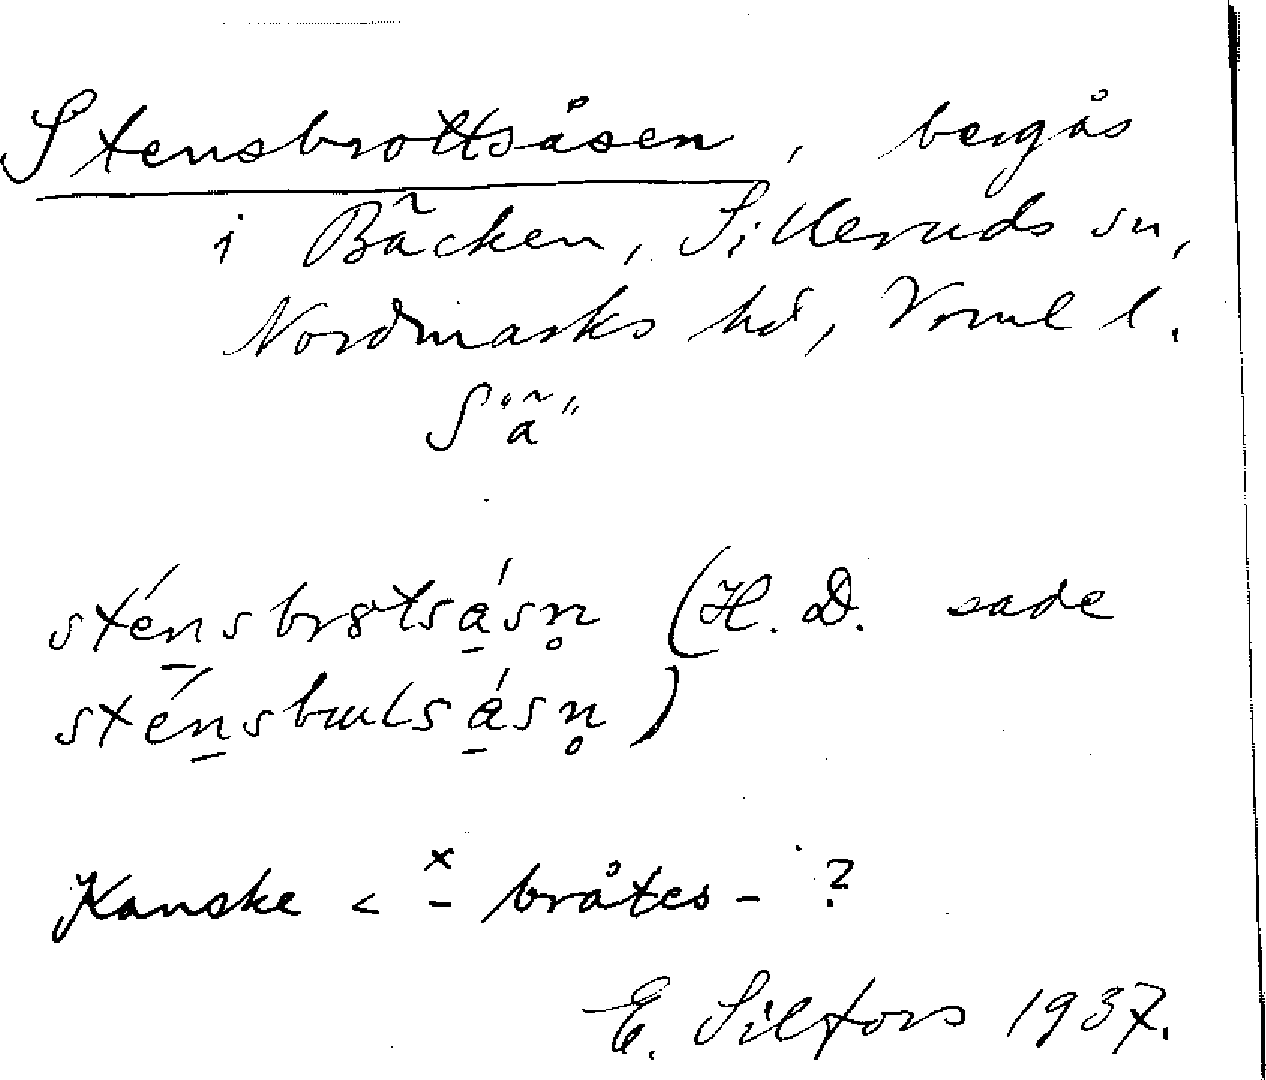 Stensbrottsåsen, bergås
i Bäcken, Silleruds sn,
Nordmarks hd, Vrml l.
sténsbrɞtsásn̥ (H. D. sade
sténsbɯtsásn̥)
Kanske < × - bråtes - ?
E. Silfors 1937.